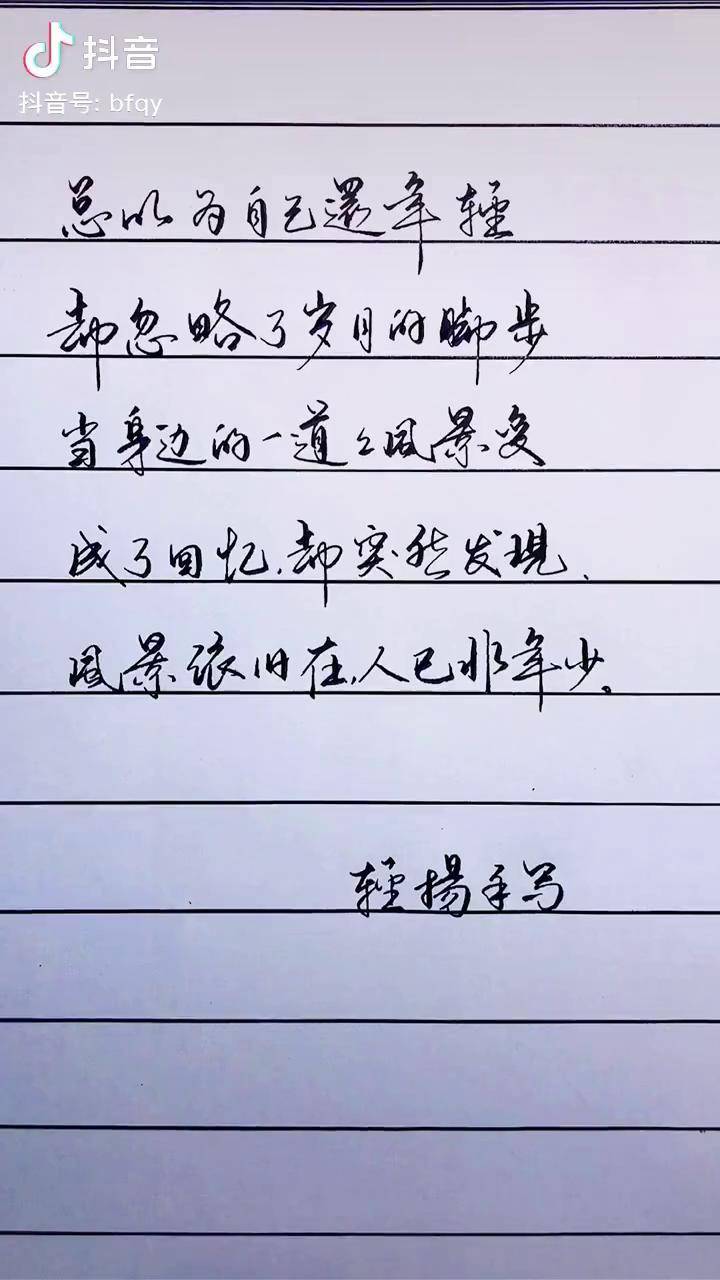 抖音
抖音号: bfqy
总以为自己還年輕
却忽略了岁月的脚步
当身边的一道々風景变
成了回忆,却突然发現、
風景依旧在,人已非年少。
輕揚手写